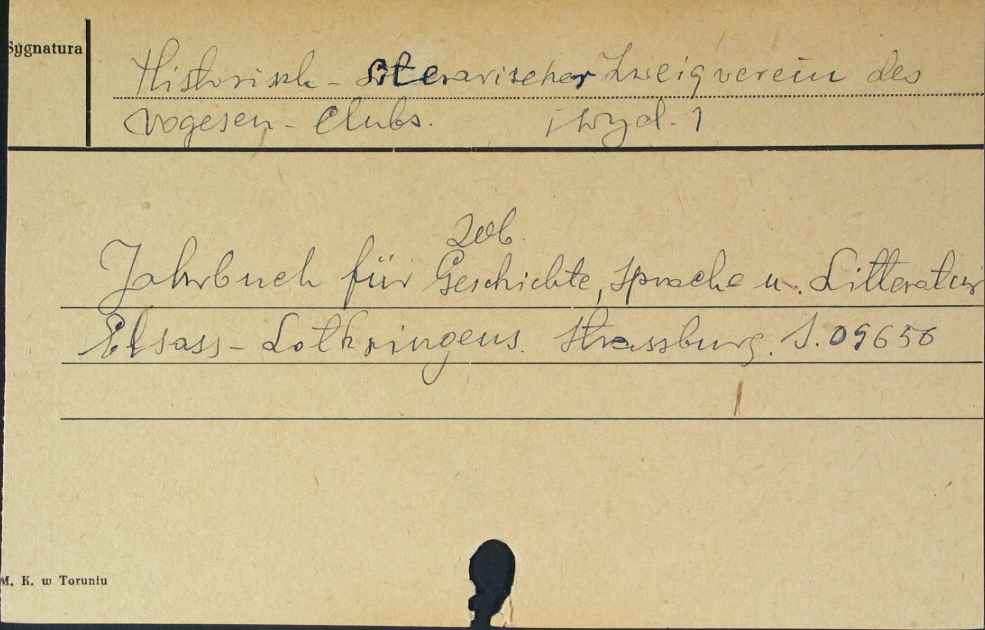 Sygnatura
Historisch - Literarischer Zweigverein des
Vogesen - Clubs. /wyd. 1
Zob.
Jahrbuch für Geschichte, Sprache u. Litteratur
Elsass - Lothringens. Strassburg. S. 09656
M. K. w Toruniu